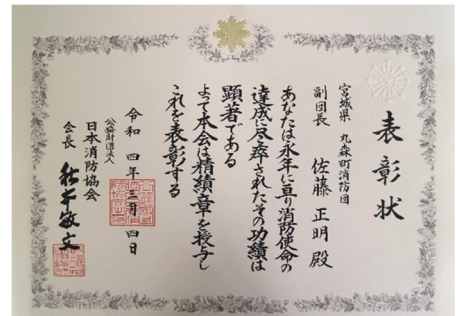 表彰状
宮城県 丸森町消防団
副団長 佐藤 正明 殿
あなたは永年に亘り消防使命の
達成に尽瘁されたその功績は
顕著である
よって本会は精績章を授与し
これを表彰する
令和四年三月四日
公益財団法人
日本消防協会
会長 秋本敏文